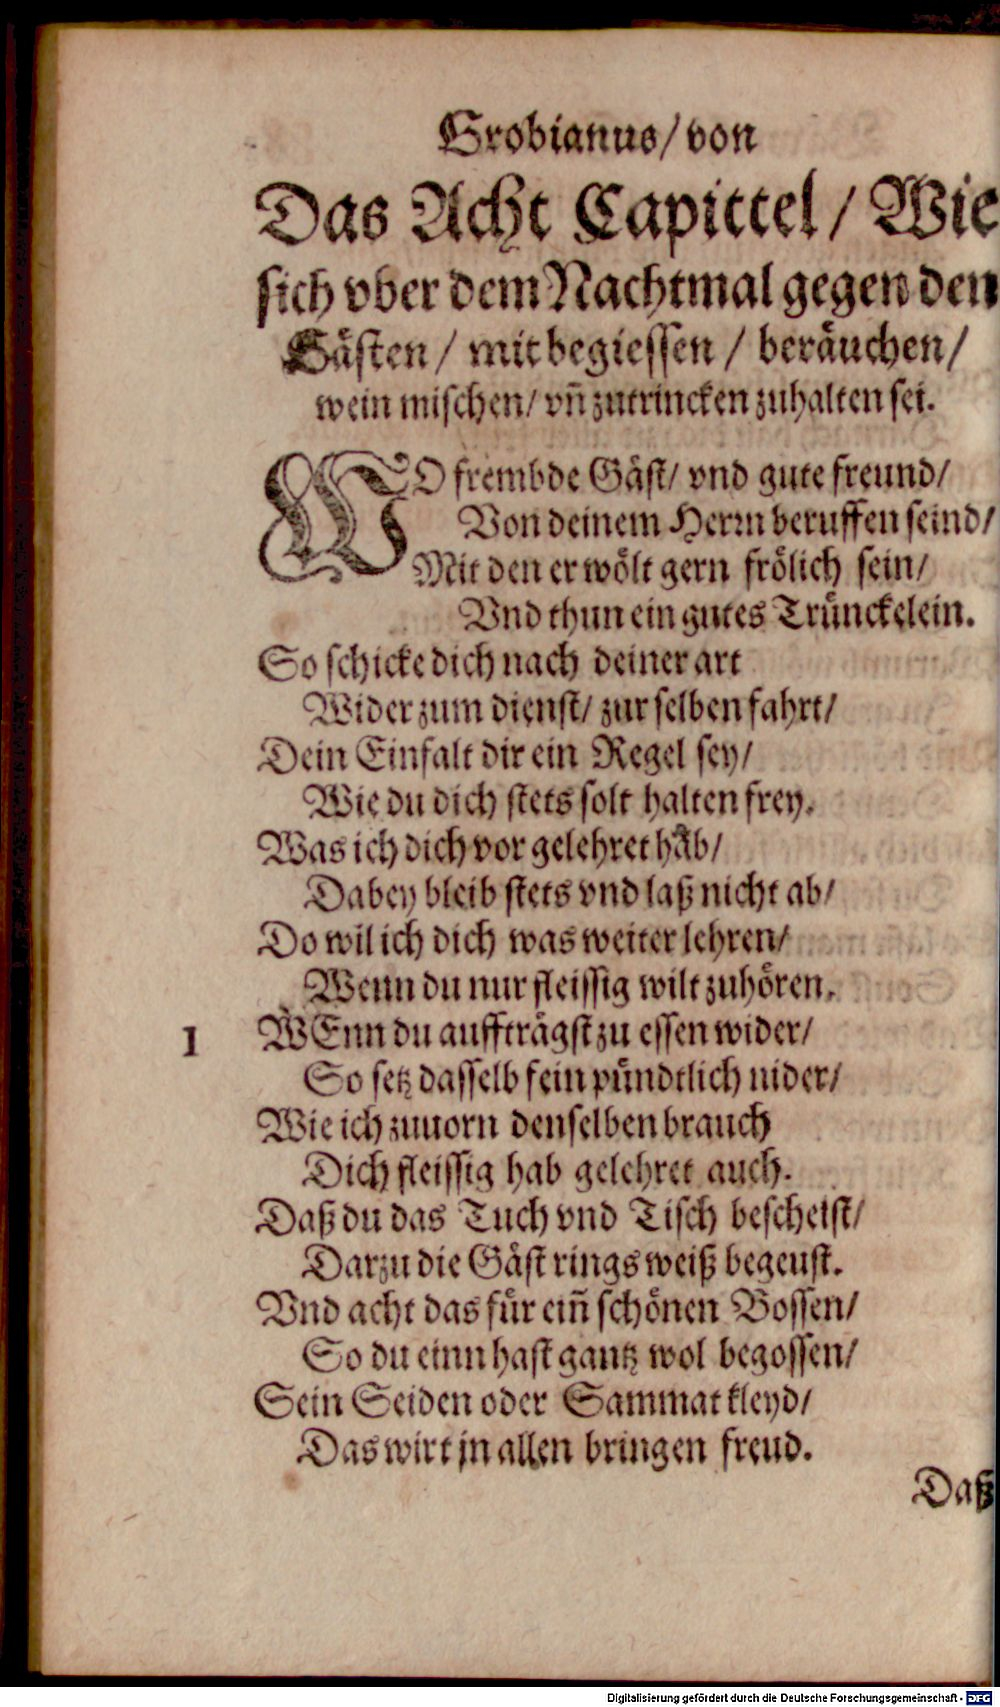 Grobianus/ von
Das Acht Capittel / Wie
sich vber dem Nachtmal gegen den
Gästen / mit begiessen / beräuchen /
wein mischen / vn̄ zutrincken zuhalten sei.
WO frembde Gäst/ vnd gute freund/
Von deinem Herrn beruffen seind/
Mit den er wölt gern frölich sein/
Vnd thun ein gutes Trünckelein.
So schicke dich nach deiner art
Wider zum dienst/ zur selben fahrt/
Dein Einfalt dir ein Regel sey/
Wie du dich stets solt halten frey.
Was ich dich vor gelehret hab/
Dabey bleib stets vnd laß nicht ab/
Do wil ich dich was weiter lehren/
Wenn du nur fleissig wilt zuhören.
1 WEnn du auffträgst zu essen wider/
So setz dasselb fein pündtlich nider/
Wie ich zuuorn denselben brauch
Dich fleissig hab gelehret auch.
Daß du das Tuch vnd Tisch bescheist/
Darzu die Gäst rings weiß begeust.
Vnd acht das für ein̄ schönen Bossen/
So du einn hast gantz wol begossen/
Sein Seiden oder Sammat kleyd/
Das wirt jn allen bringen freud.
Daß
Digitalisierung gefördert durch die Deutsche Forschungsgemeinschaft - DFG